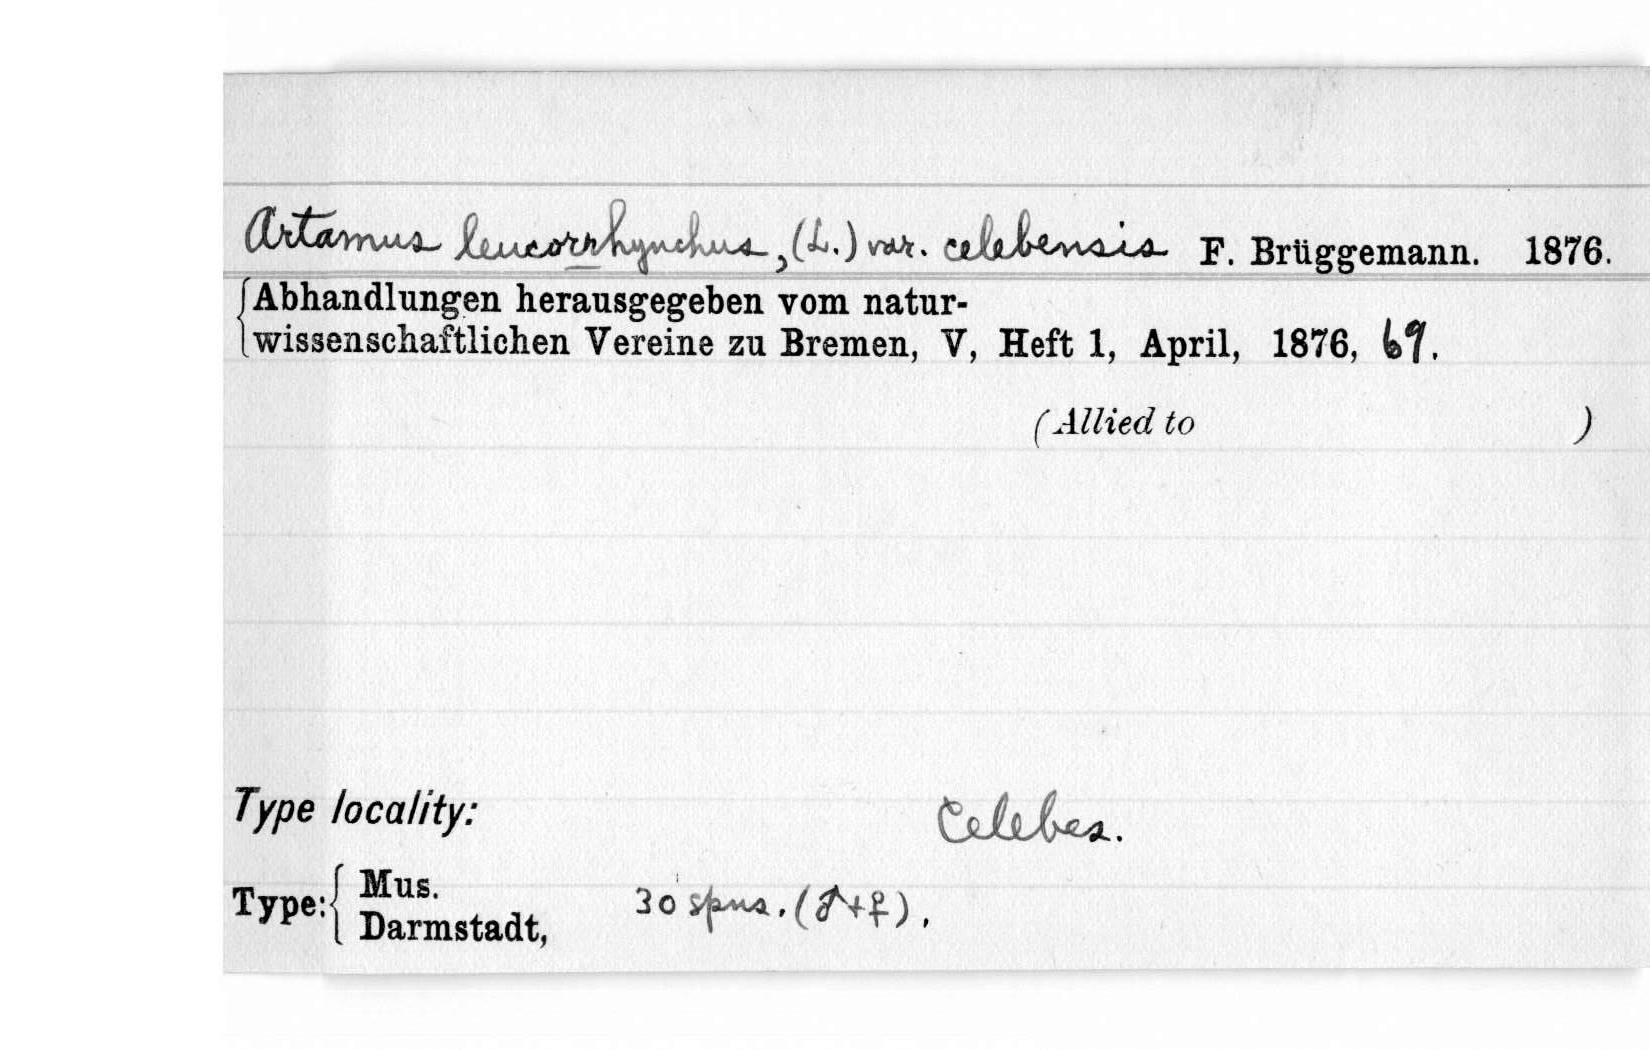 Artamus leucorrhynchus, (L.) var. celebensis F. Brüggemann. 1876.
Abhandlungen herausgegeben vom natur-
wissenschaftlichen Vereine zu Bremen, V, Heft 1, April, 1876, 69.
(Allied to )
Type locality: Celebes.
Type: { Mus.
Darmstadt, 30 spns. (♂+♀).